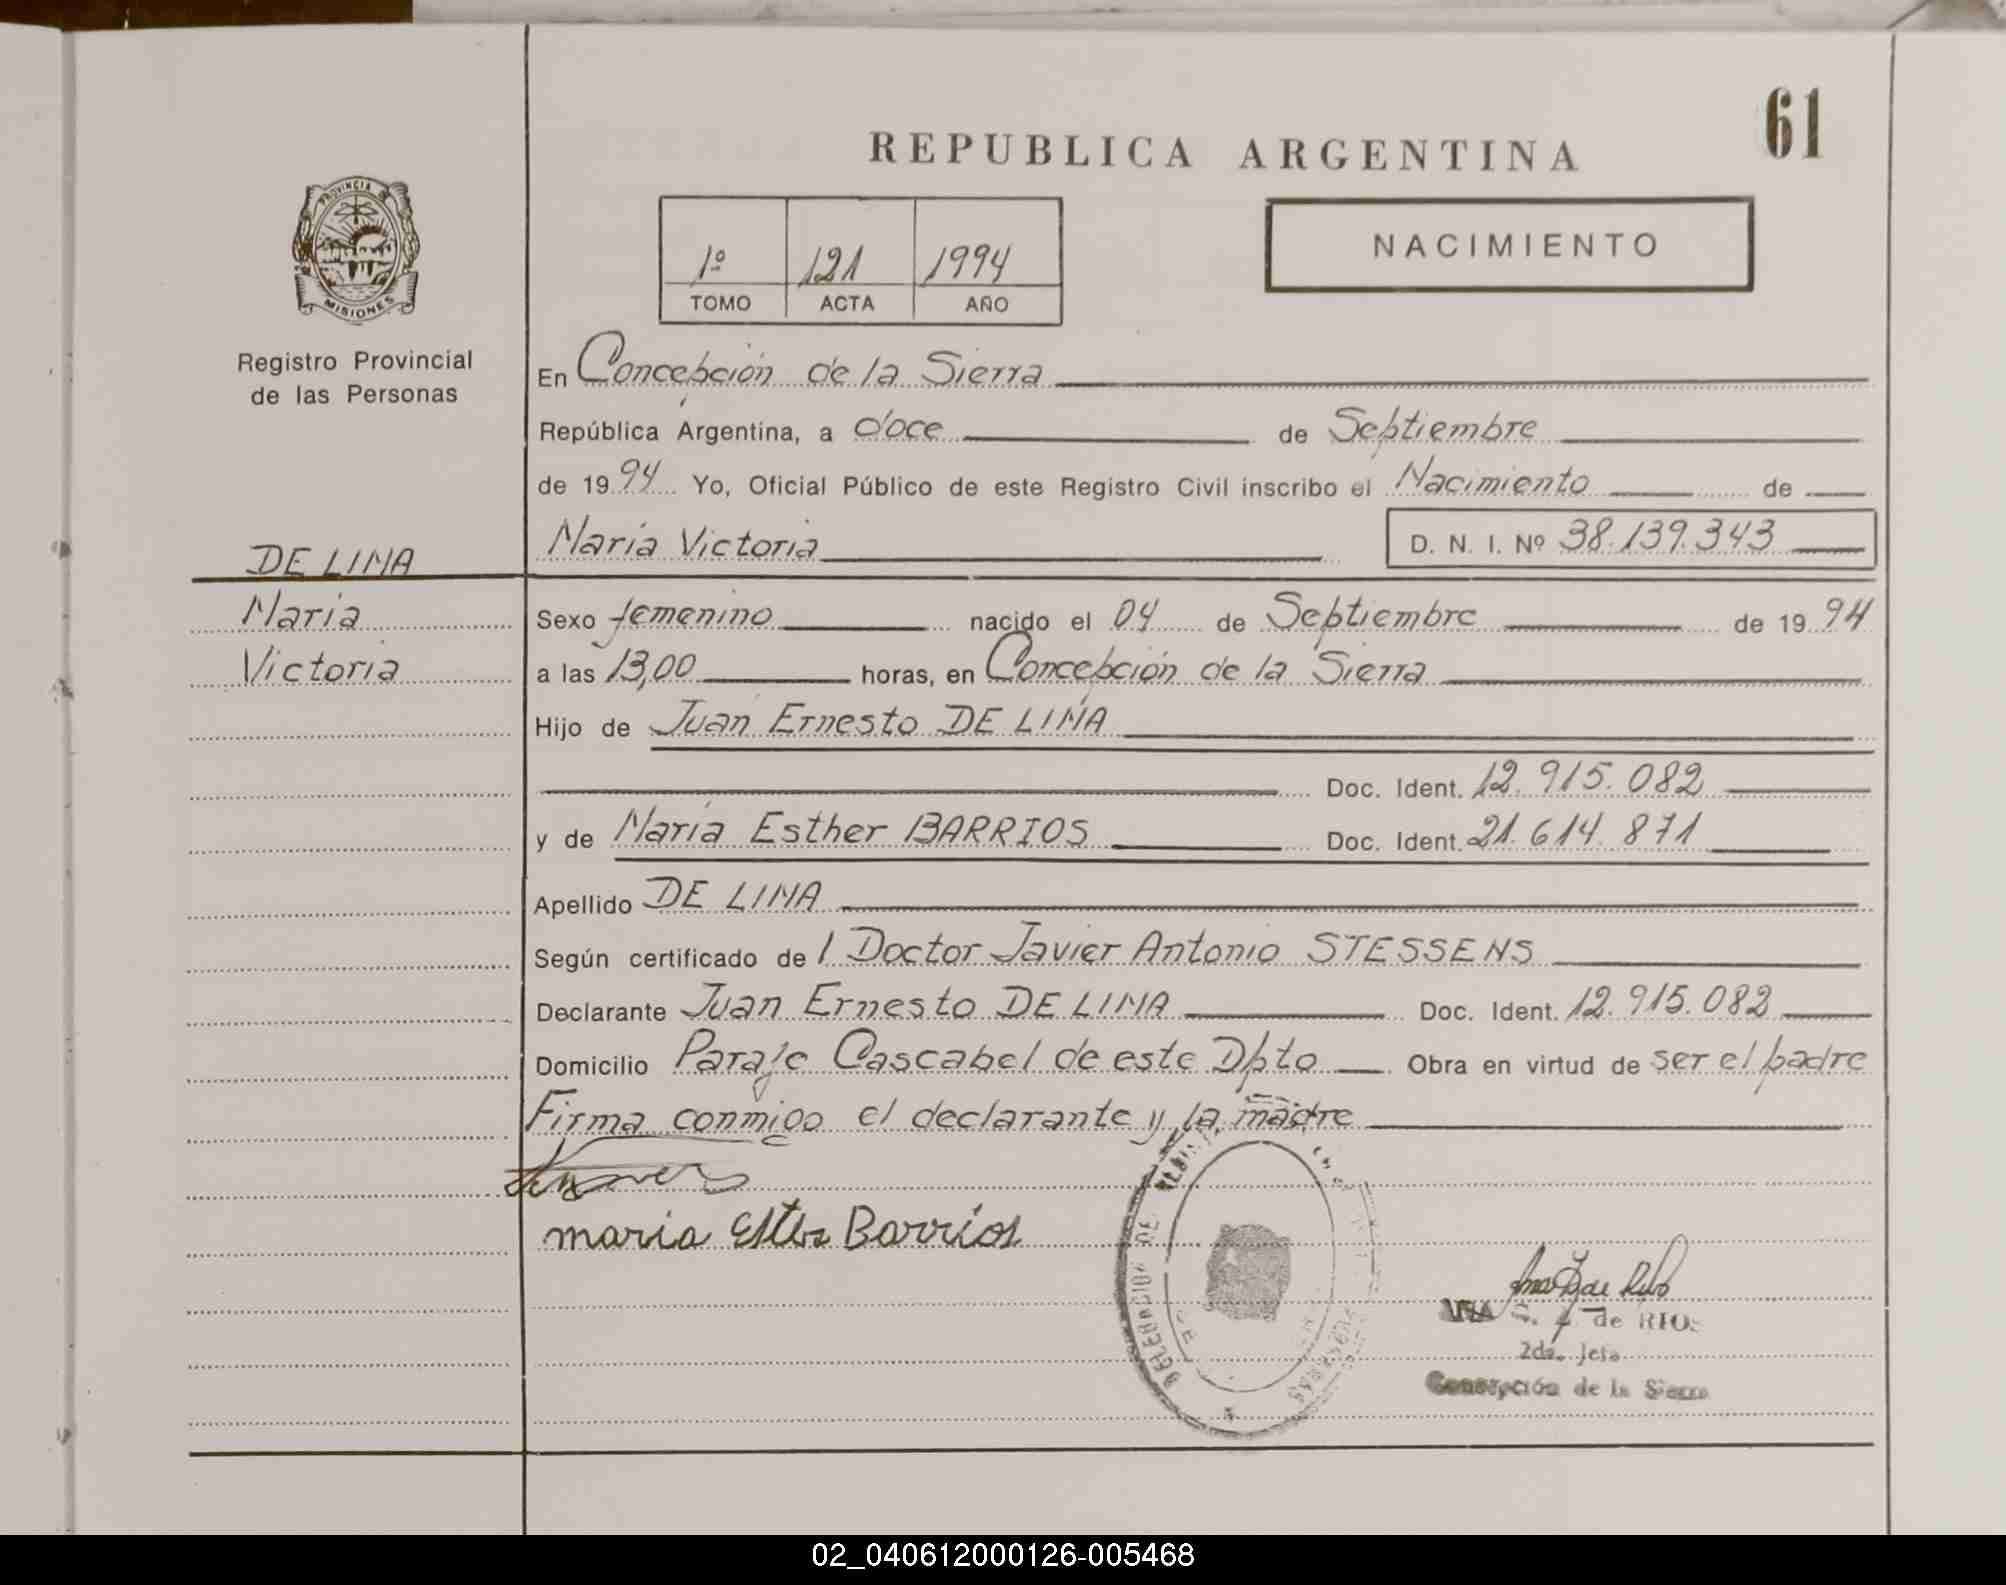 61
REPUBLICA ARGENTINA
PROVINCIA DE
MISIONES
Registro Provincial
de las Personas
1º 121 1994
TOMO ACTA AÑO
NACIMIENTO
En Concepción de la Sierra
República Argentina, a doce de Septiembre
de 1994 Yo, Oficial Público de este Registro Civil inscribo el Nacimiento de
María Victoria D. N. I. Nº 38.139.343
DE LIMA
Maria
Victoria
Sexo femenino nacido el 04 de Septiembre de 1994
a las 13,00 horas, en Concepción de la Sierra
Hijo de Juan Ernesto DE LIMA
Doc. Ident. 12.915.082
y de María Esther BARRIOS Doc. Ident. 21.614.871
Apellido DE LIMA
Según certificado de l Doctor Javier Antonio STESSENS
Declarante Juan Ernesto DE LIMA Doc. Ident. 12.915.082
Domicilio Paraje Cascabel de este Dpto Obra en virtud de ser el padre
Firma conmigo el declarante y la madre
maria Barrios
DELEGACION DE
de RIOS
2da. Jefa
Concepción de la Sierra
02_040612000126-005468